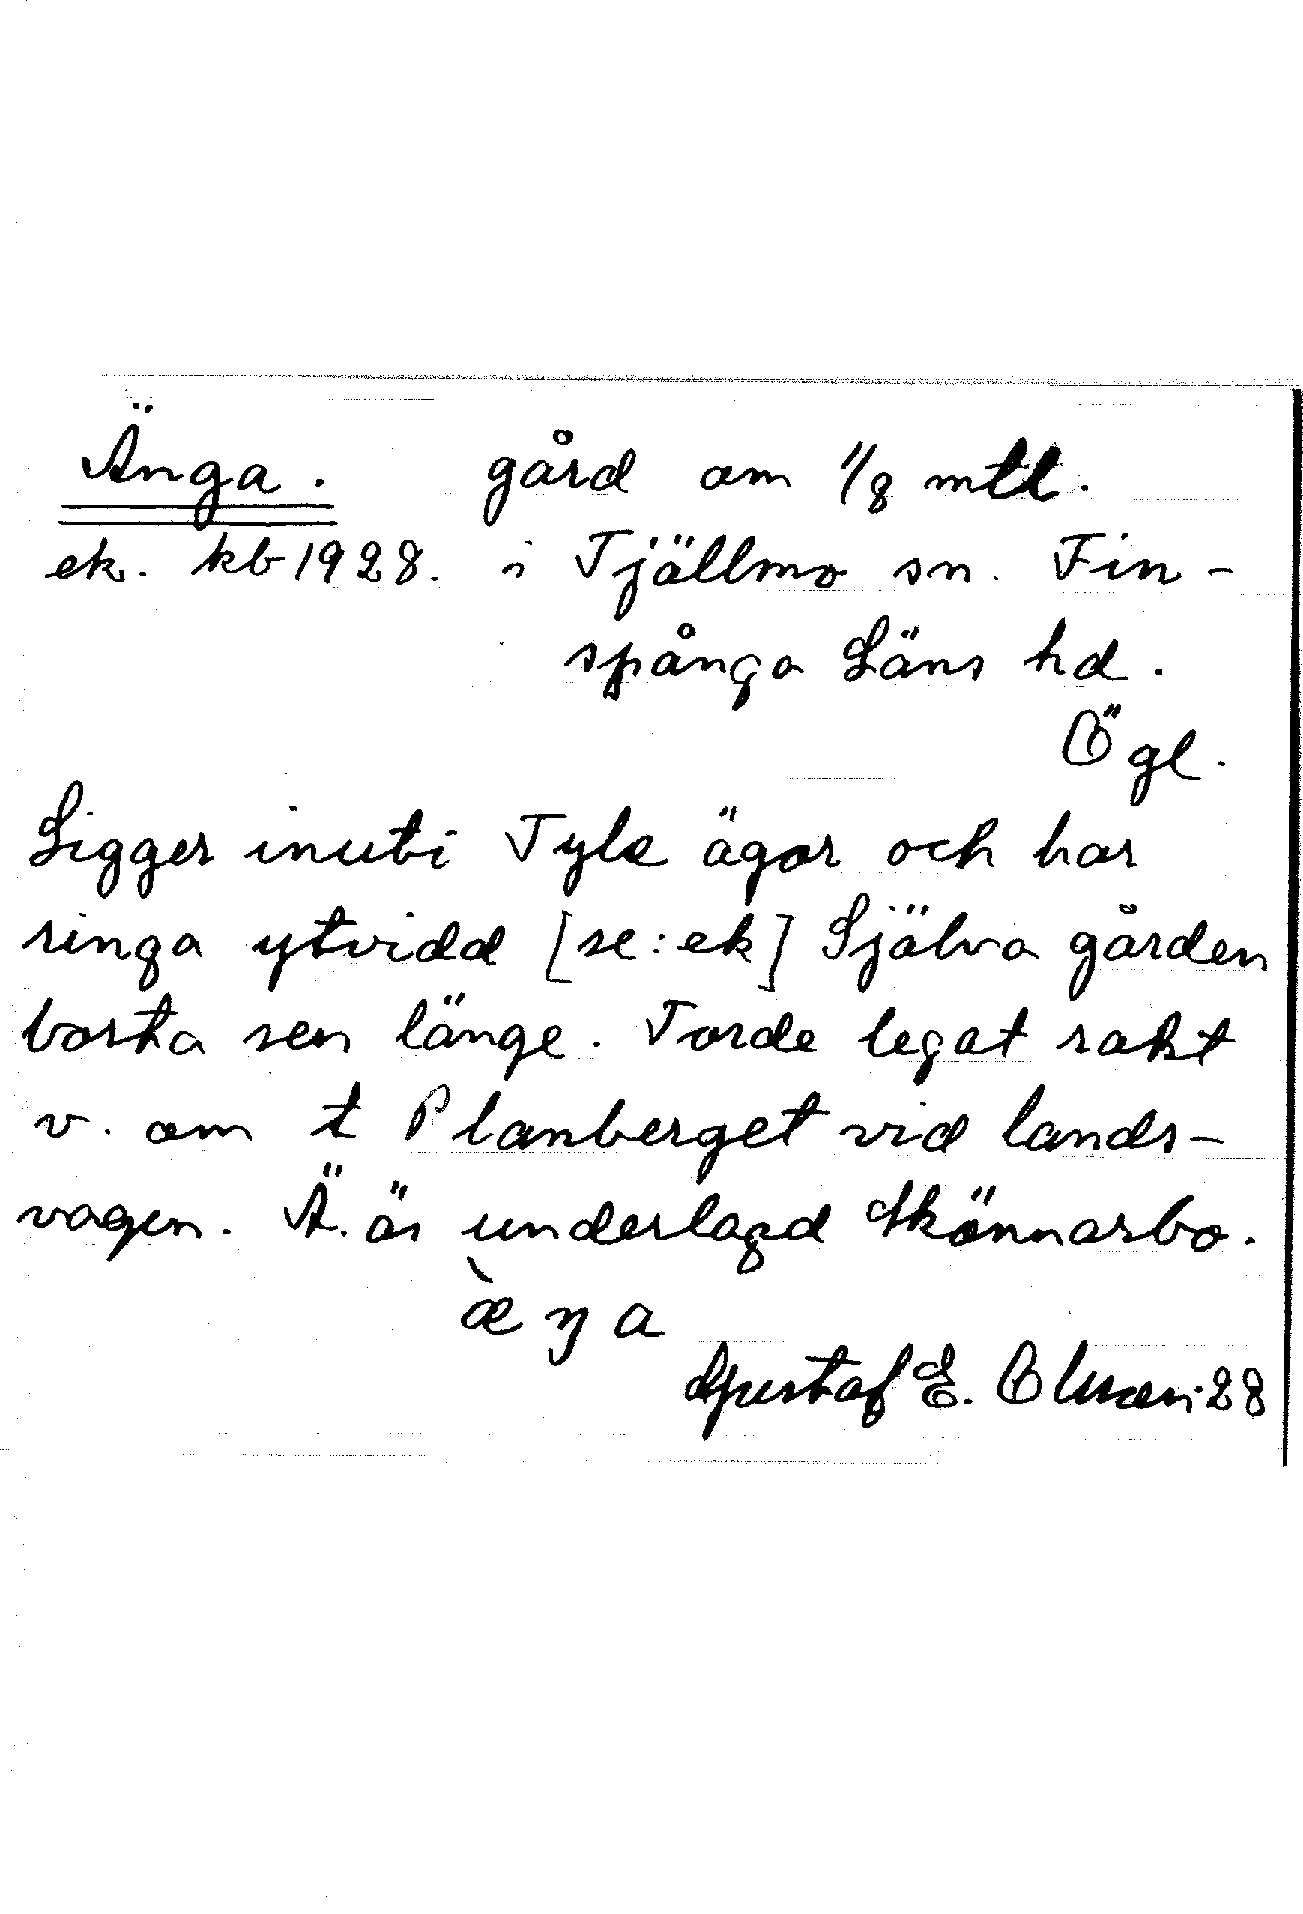 Änga. gård om 1/8 mtl.
ek. kb 1928. i Tjällmo sn. Fin-
spånga Läns hd.
Ögl.
Ligger inuti Tyle ägor och har
ringa ytvidd [se: ek] Själva gården
borta sen länge. Torde legat rakt
v. om t Planberget vid lands-
vägen. Ä. är underlagd Skönnarbo.
æ̀ŋa
Gustaf E. Olsson 28